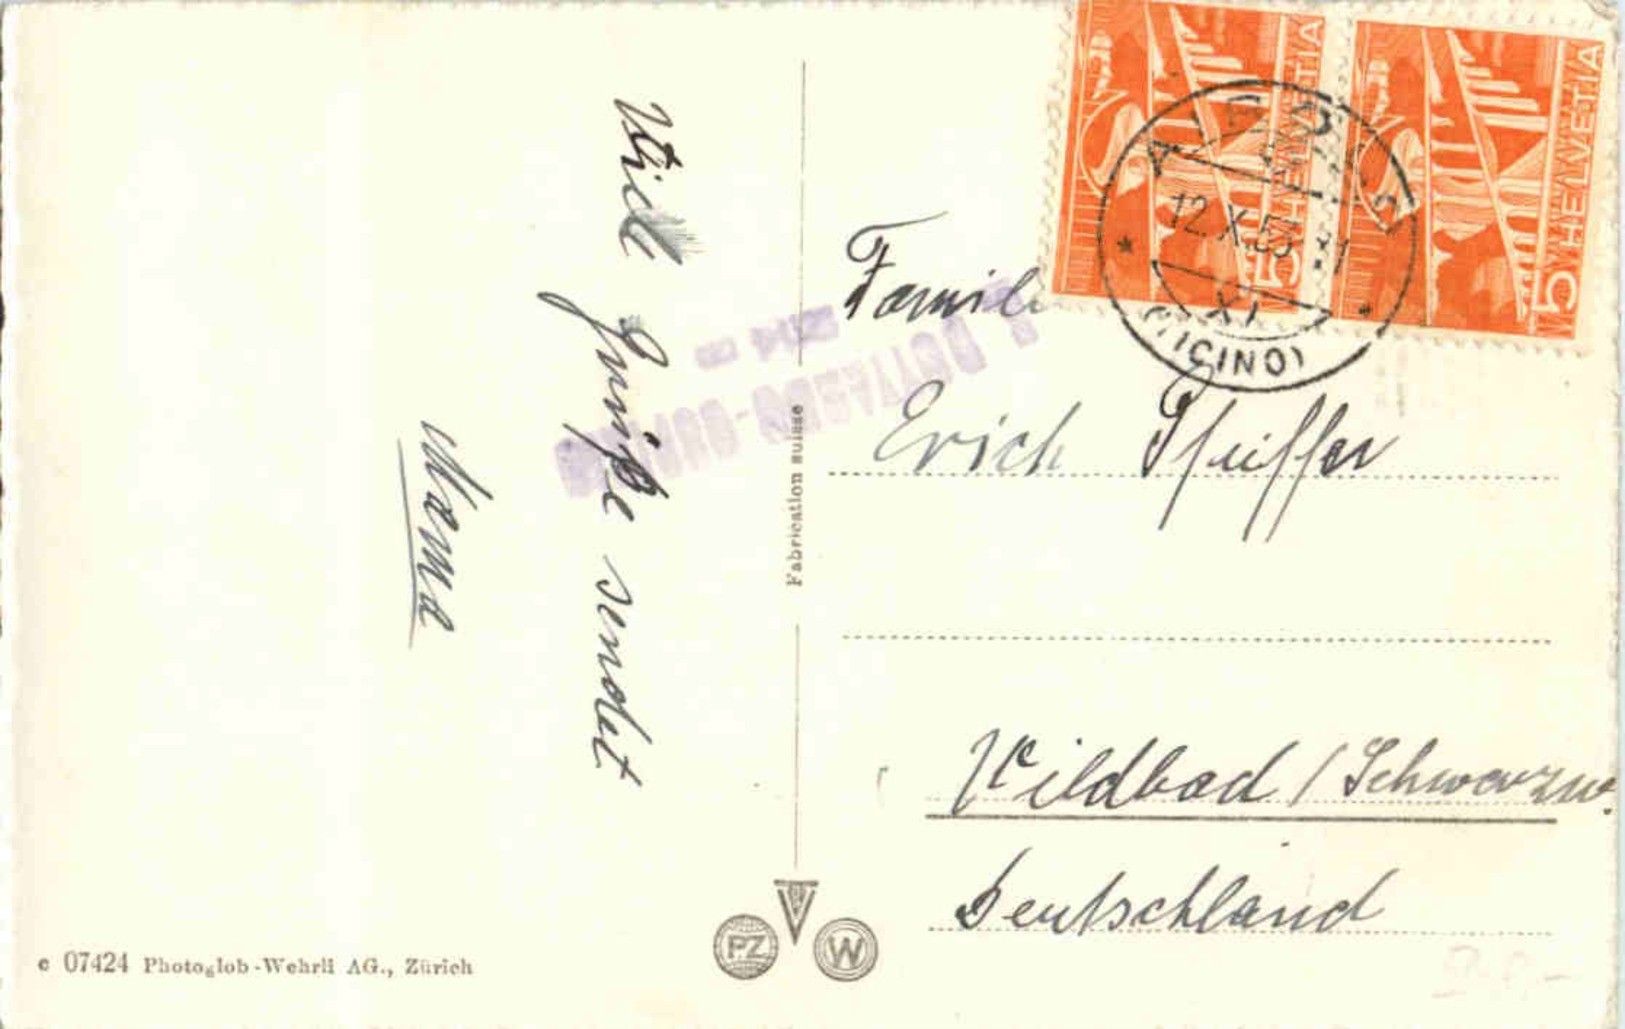 Viele Grüße sendet
Mama
Familie
Erich Pfeiffer
Wildbad / Schwarzw.
Deutschland
HELVETIA
5
HELVETIA
5
AIROLO
12.X.53
XI
(TICINO)
Fabrication suisse
PZ
W
c 07424 Photoglob-Wehrli AG., Zürich